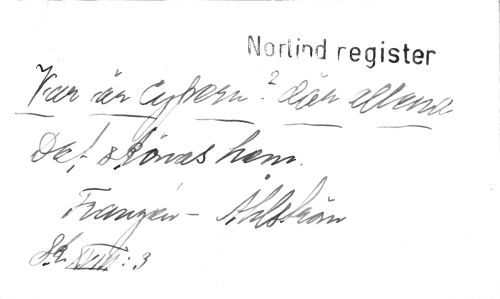 Norlind register
Var är Cypern? där allena
Det skönas hem.
Franzén - Åhlström
Sk XVIII: 3